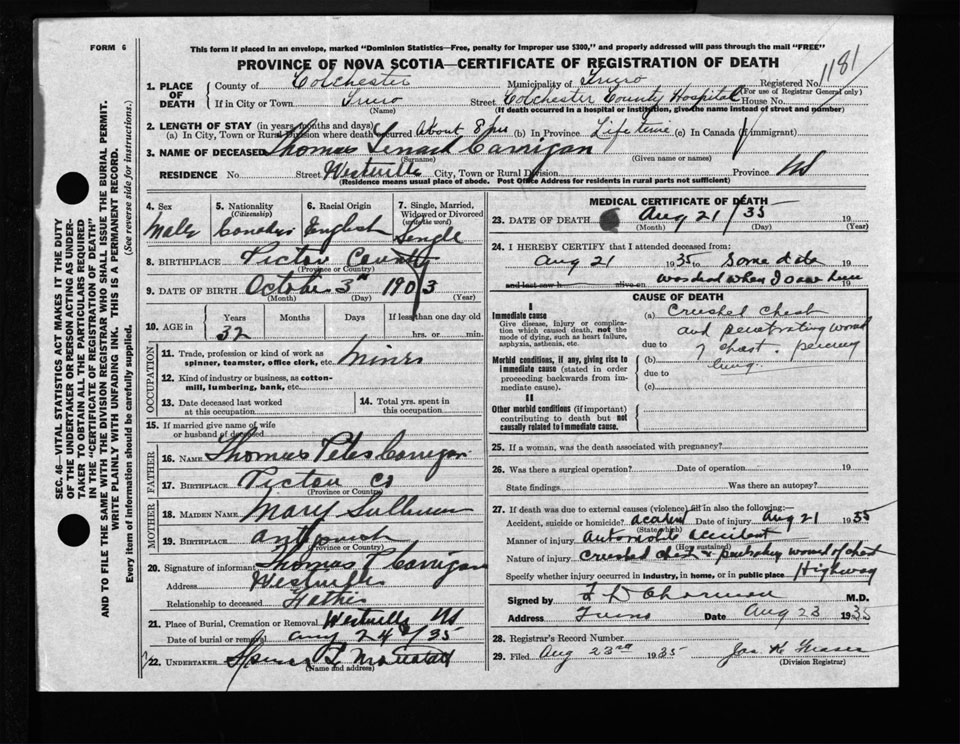 FORM 6
This form if placed in an envelope, marked "Dominion Statistics—Free, penalty for improper use $300," and properly addressed will pass through the mail "FREE"
PROVINCE OF NOVA SCOTIA—CERTIFICATE OF REGISTRATION OF DEATH
1181
SEC. 46—VITAL STATISTICS ACT MAKES IT THE DUTY
OF THE UNDERTAKER OR PERSON ACTING AS UNDER-
TAKER TO OBTAIN ALL THE PARTICULARS REQUIRED
IN THE "CERTIFICATE OF REGISTRATION OF DEATH"
AND TO FILE THE SAME WITH THE DIVISION REGISTRAR WHO SHALL ISSUE THE BURIAL PERMIT.
WRITE PLAINLY WITH UNFADING INK. THIS IS A PERMANENT RECORD.
Every item of information should be carefully supplied. (See reverse side for instructions.)
1. PLACE OF DEATH
County of Colchester Municipality of Truro Registered No.
(For use of Registrar General only)
If in City or Town Truro Street Colchester County Hospital House No.
(Name) (If death occurred in a hospital or institution, give the name instead of street and number)
2. LENGTH OF STAY (in years, months and days)
(a) In City, Town or Rural Division where death occurred About 8 hrs (b) In Province Life time (c) In Canada (if immigrant)
3. NAME OF DECEASED Thomas Carrigan
(Surname) (Given name or names)
RESIDENCE No. Street Westville City, Town or Rural Division Province NS
(Residence means usual place of abode. Post Office Address for residents in rural parts not sufficient)
4. Sex
Male
5. Nationality
(Citizenship)
6. Racial Origin
English
7. Single, Married, Widowed or Divorced
(write the word)
Single
8. BIRTHPLACE Pictou County
(Province or Country)
9. DATE OF BIRTH October 3rd 1903
(Month) (Day) (Year)
10. AGE in
Years Months Days If less than one day old
32 hrs. or min.
OCCUPATION
11. Trade, profession or kind of work as
spinner, teamster, office clerk, etc. Miner
12. Kind of industry or business, as cotton-
mill, lumbering, bank, etc.
13. Date deceased last worked
at this occupation
14. Total yrs. spent in
this occupation
15. If married give name of wife
or husband of deceased
FATHER
16. NAME Thomas Peter Carrigan
17. BIRTHPLACE Pictou Co
(Province or Country)
MOTHER
18. MAIDEN NAME Mary Sullivan
19. BIRTHPLACE Antigonish
(Province or Country)
20. Signature of informant Thomas P Carrigan
Address Westville
Relationship to deceased Father
21. Place of Burial, Cremation or Removal Westville NS
Date of burial or removal Aug 24/35
22. UNDERTAKER
(Name and address)
MEDICAL CERTIFICATE OF DEATH
23. DATE OF DEATH Aug 21/35 19
(Month) (Day) (Year)
24. I HEREBY CERTIFY that I attended deceased from:
Aug 21 1935 to Same date
and last saw h alive on was dead when I saw him 19
CAUSE OF DEATH
I
Immediate cause
Give disease, injury or complica-
tion which caused death, not the
mode of dying, such as heart failure,
asphyxia, asthenia, etc.
Morbid conditions, if any, giving rise to
immediate cause (stated in order
proceeding backwards from im-
mediate cause).
II
Other morbid conditions (if important)
contributing to death but not
causally related to immediate cause.
(a) Crushed chest
and penetrating wound
due to of chest. piercing
(b) lung.
due to
(c)
25. If a woman, was the death associated with pregnancy?
26. Was there a surgical operation? Date of operation 19
State findings Was there an autopsy?
27. If death was due to external causes (violence) fill in also the following:—
Accident, suicide or homicide? accident Date of injury Aug 21 1935
(State which)
Manner of injury Automobile accident
(How sustained)
Nature of injury Crushed chest & penetrating wound of chest
Specify whether injury occurred in industry, in home, or in public place Highway
Signed by M.D.
Address Truro Date Aug 23 1935
28. Registrar's Record Number
29. Filed Aug 23rd 1935 Jas. K Fraser
(Division Registrar)